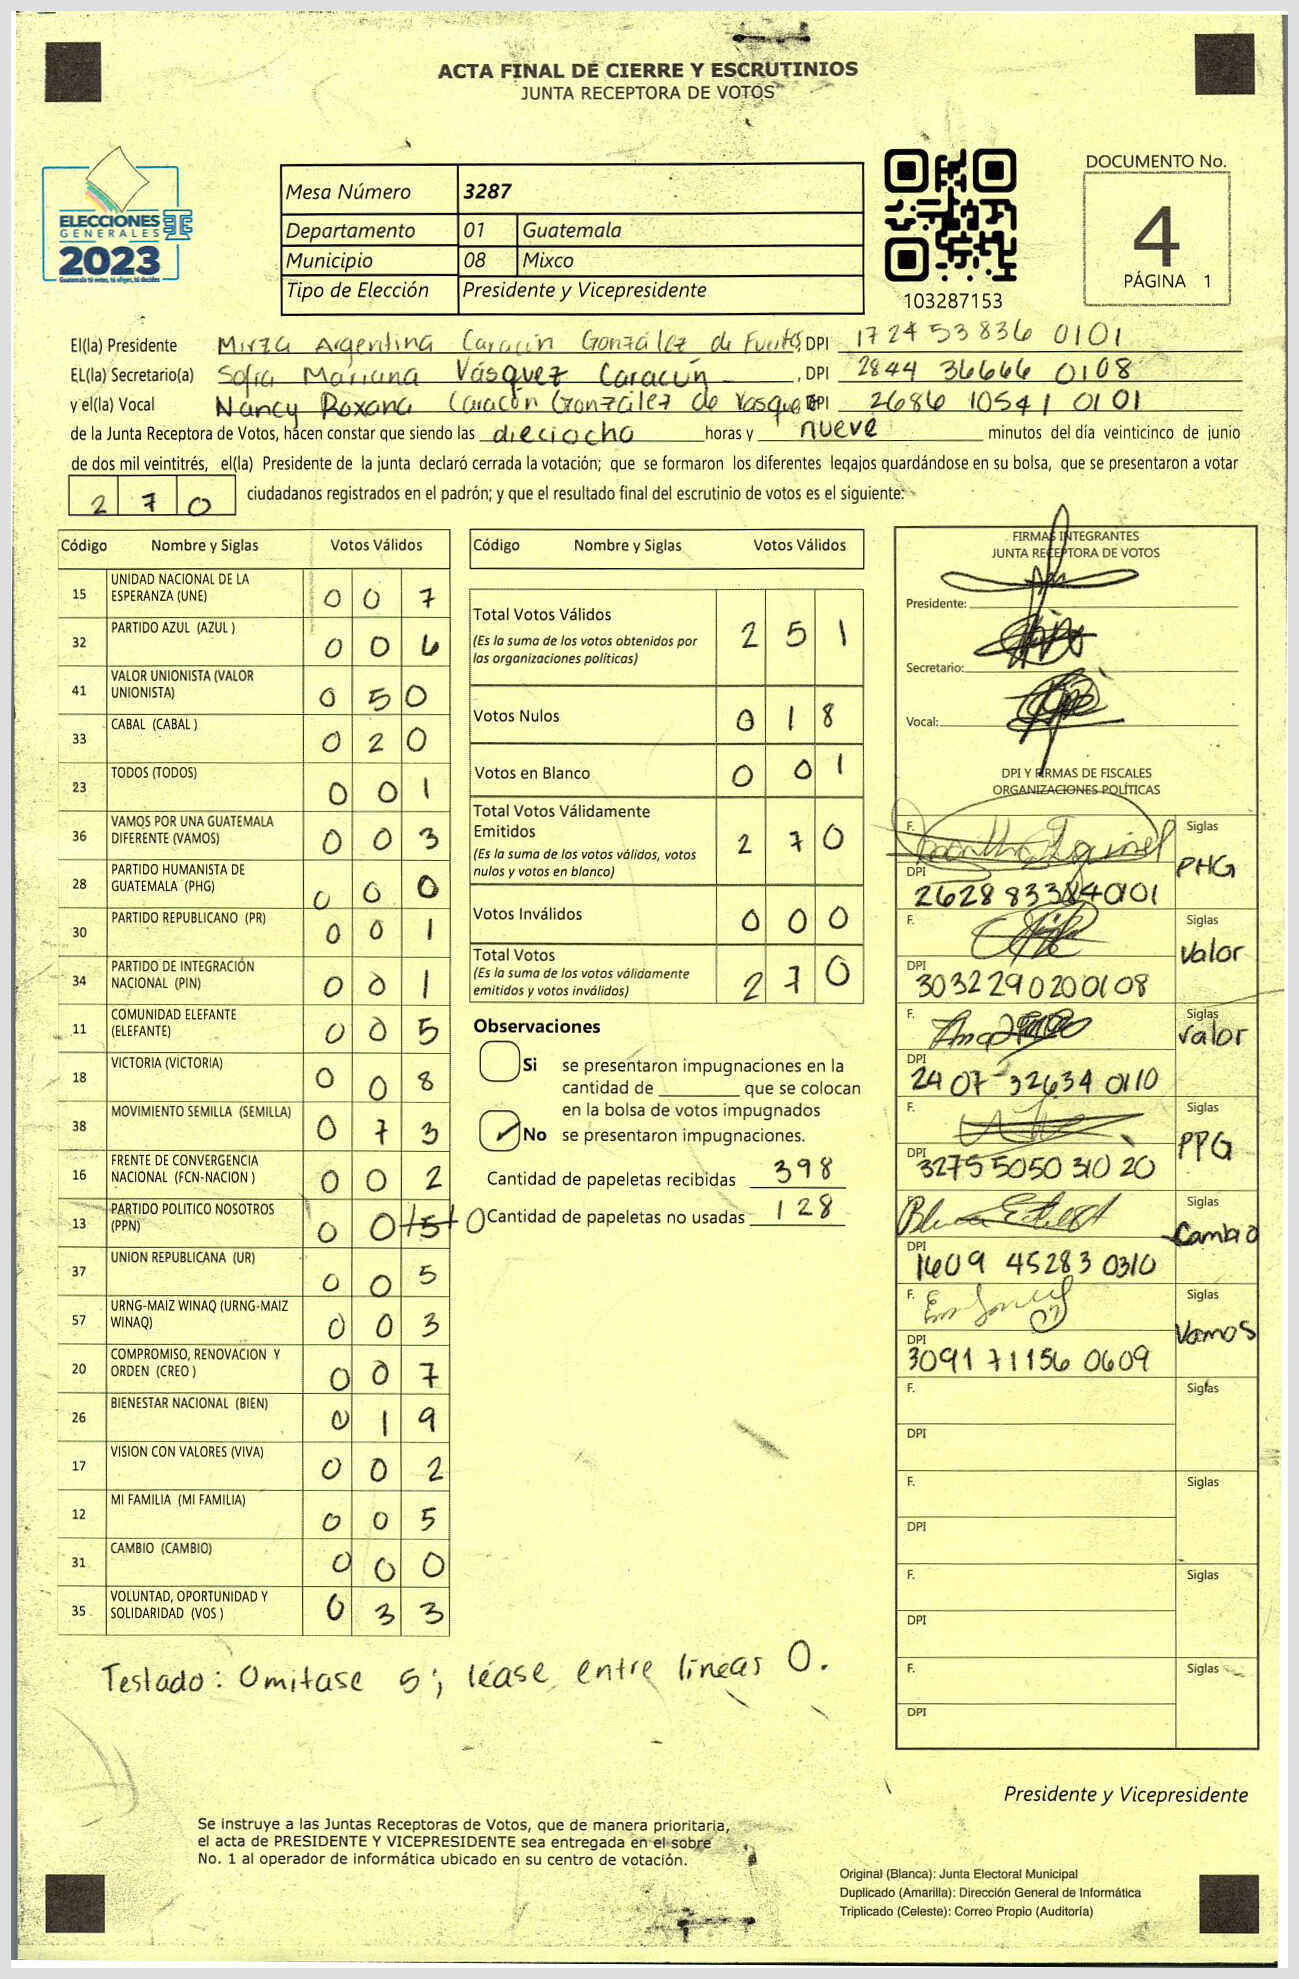 ACTA FINAL DE CIERRE Y ESCRUTINIOS
JUNTA RECEPTORA DE VOTOS
ELECCIONES
GENERALES
2023
Guatemala tú votas, tú eliges, tú decides
Mesa Número 3287
Departamento 01 Guatemala
Municipio 08 Mixco
Tipo de Elección Presidente y Vicepresidente
103287153
DOCUMENTO No.
4
PÁGINA 1
El(la) Presidente Mirza Argentina Caracún González de Fuentes, DPI 1724 53836 0101
EL(la) Secretario(a) Sofia Mariana Vásquez Caracún, DPI 2844 36666 0108
y el(la) Vocal Nancy Roxana Caracón González de Vasquez DPI 2686 10541 0101
de la Junta Receptora de Votos, hacen constar que siendo las dieciocho horas y nueve minutos del día veinticinco de junio
de dos mil veintitrés, el(la) Presidente de la junta declaró cerrada la votación; que se formaron los diferentes legajos guardándose en su bolsa, que se presentaron a votar
270 ciudadanos registrados en el padrón; y que el resultado final del escrutinio de votos es el siguiente:
Código Nombre y Siglas Votos Válidos
15 UNIDAD NACIONAL DE LA ESPERANZA (UNE) 0 0 7
32 PARTIDO AZUL (AZUL ) 0 0 6
41 VALOR UNIONISTA (VALOR UNIONISTA) 0 5 0
33 CABAL (CABAL ) 0 2 0
23 TODOS (TODOS) 0 0 1
36 VAMOS POR UNA GUATEMALA DIFERENTE (VAMOS) 0 0 3
28 PARTIDO HUMANISTA DE GUATEMALA (PHG) 0 0 0
30 PARTIDO REPUBLICANO (PR) 0 0 1
34 PARTIDO DE INTEGRACIÓN NACIONAL (PIN) 0 0 1
11 COMUNIDAD ELEFANTE (ELEFANTE) 0 0 5
18 VICTORIA (VICTORIA) 0 0 8
38 MOVIMIENTO SEMILLA (SEMILLA) 0 7 3
16 FRENTE DE CONVERGENCIA NACIONAL (FCN-NACION ) 0 0 2
13 PARTIDO POLITICO NOSOTROS (PPN) 0 0 5 0
37 UNION REPUBLICANA (UR) 0 0 5
57 URNG-MAIZ WINAQ (URNG-MAIZ WINAQ) 0 0 3
20 COMPROMISO, RENOVACION Y ORDEN (CREO ) 0 0 7
26 BIENESTAR NACIONAL (BIEN) 0 1 9
17 VISION CON VALORES (VIVA) 0 0 2
12 MI FAMILIA (MI FAMILIA) 0 0 5
31 CAMBIO (CAMBIO) 0 0 0
35 VOLUNTAD, OPORTUNIDAD Y SOLIDARIDAD (VOS ) 0 3 3
Código Nombre y Siglas Votos Válidos
Total Votos Válidos 2 5 1
(Es la suma de los votos obtenidos por
las organizaciones políticas)
Votos Nulos 0 1 8
Votos en Blanco 0 0 1
Total Votos Válidamente
Emitidos 2 7 0
(Es la suma de los votos válidos, votos
nulos y votos en blanco)
Votos Inválidos 0 0 0
Total Votos 2 7 0
(Es la suma de los votos válidamente
emitidos y votos inválidos)
Observaciones
Si se presentaron impugnaciones en la
cantidad de ________ que se colocan
en la bolsa de votos impugnados
No se presentaron impugnaciones.
Cantidad de papeletas recibidas 398
Cantidad de papeletas no usadas 128
FIRMAS INTEGRANTES
JUNTA RECEPTORA DE VOTOS
Presidente:
Secretario:
Vocal:
DPI Y FIRMAS DE FISCALES
ORGANIZACIONES POLÍTICAS
F. Siglas PHG
DPI 2628 83384 0101
F. Siglas Valor
DPI 3032290200108
F. Siglas Valor
DPI 2407 32634 0110
F. Siglas PPG
DPI 3275 5050 310 20
F. Siglas Cambio
DPI 1609 45283 0310
F. Siglas Vamos
DPI 3091 71156 0609
F. Siglas
DPI
F. Siglas
DPI
F. Siglas
DPI
F. Siglas
DPI
Testado: Omitase 5; léase entre lineas 0.
Presidente y Vicepresidente
Se instruye a las Juntas Receptoras de Votos, que de manera prioritaria,
el acta de PRESIDENTE Y VICEPRESIDENTE sea entregada en el sobre
No. 1 al operador de informática ubicado en su centro de votación.
Original (Blanca): Junta Electoral Municipal
Duplicado (Amarilla): Dirección General de Informática
Triplicado (Celeste): Correo Propio (Auditoría)